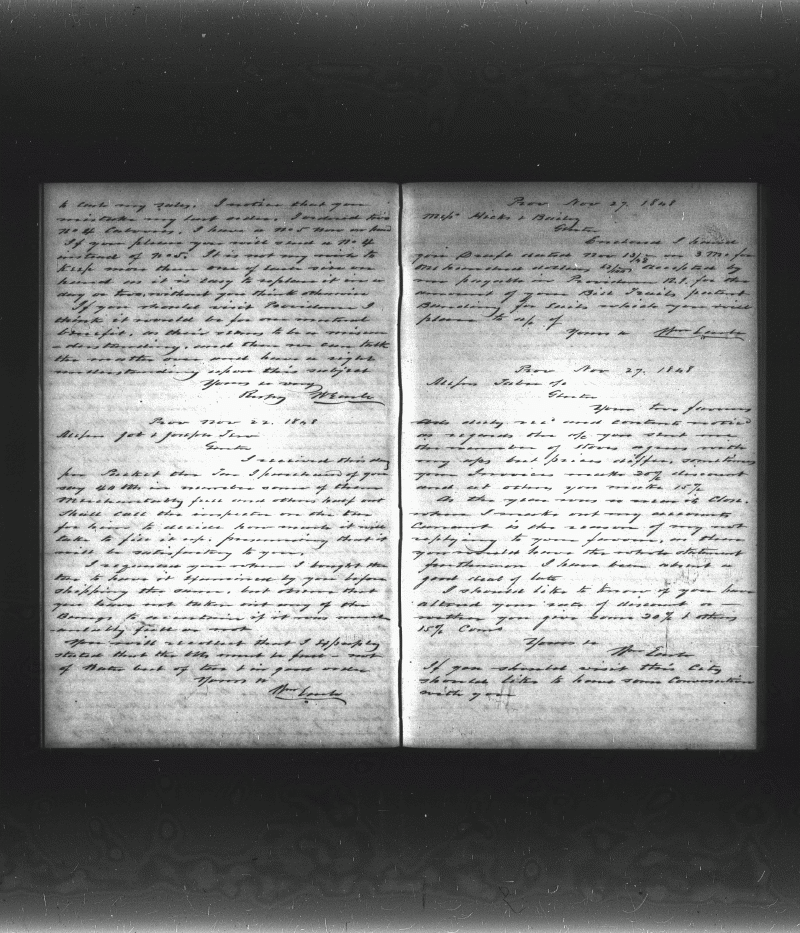 my sales. I notice that you
mistake my last order. I ordered two
No 4 I have a No 5 now on hand
If you please you will send a No 4
instead of No 5. It is not my wish to
keep more than one of each size on
hand as it is easy to replace it in a
day or two, without you think otherwise
If you should visit Providence I
think it would be for our mutual
benefit, as there seems to be a misun
derstanding, and then we can talk
the matter over and have a right
understanding upon this subject
Yours &c very
Respy W Earle
Prov Nov 22. 1848
Messrs Job & Joseph
Gents
I received this day
per Packet the Tar I purchased of you
say 40 bbls in number some of them
Merchantably full and others half out
Shall call the inspector on the
for him to decide how much it will
take to fill it up, presuming that it
will be satisfactory to you.
I requested you when I bought the
tar to have it examined by you before
shipping the same, but observe that
you have not taken out any of the
Bungs to ascertain if it was
actually full or not
You will recollect that I expressly
stated that the bbls must be full & not
of Water but of tar & in good order
Yours &c
Wm Earle
Prov Nov 27. 1848
Messrs Hicks & Bailey
Gents
Enclosed I hand
you Draft dated Nov on 3 Mos for
hundred dollars accepted by
me payable in Providence R.I. for the
amount of your Bill
for which you will
please to a/c of
Yours &c Wm Earle
Prov Nov 27. 1848
Messrs Taber &c
Gents
Your two favours
are duly rec'd and contents noticed
as regards the a/c you sent me
the number of Stoves agrees with
my a/cs but prices differ, sometimes
you Invoices make 20% discount
and at others you make 15%
As the year was so near its Close,
when I make out my accounts
Current is the reason of my not
replying to your favours, as then
you would have the whole statement
furthermore I have been absent a
good deal of late
I should like to know if you have
altered your rate of discount or
whether you give some 20% & others
15% Coms
Yours &c
Wm Earle
If you should visit this City
should like to have some Conversation
with you